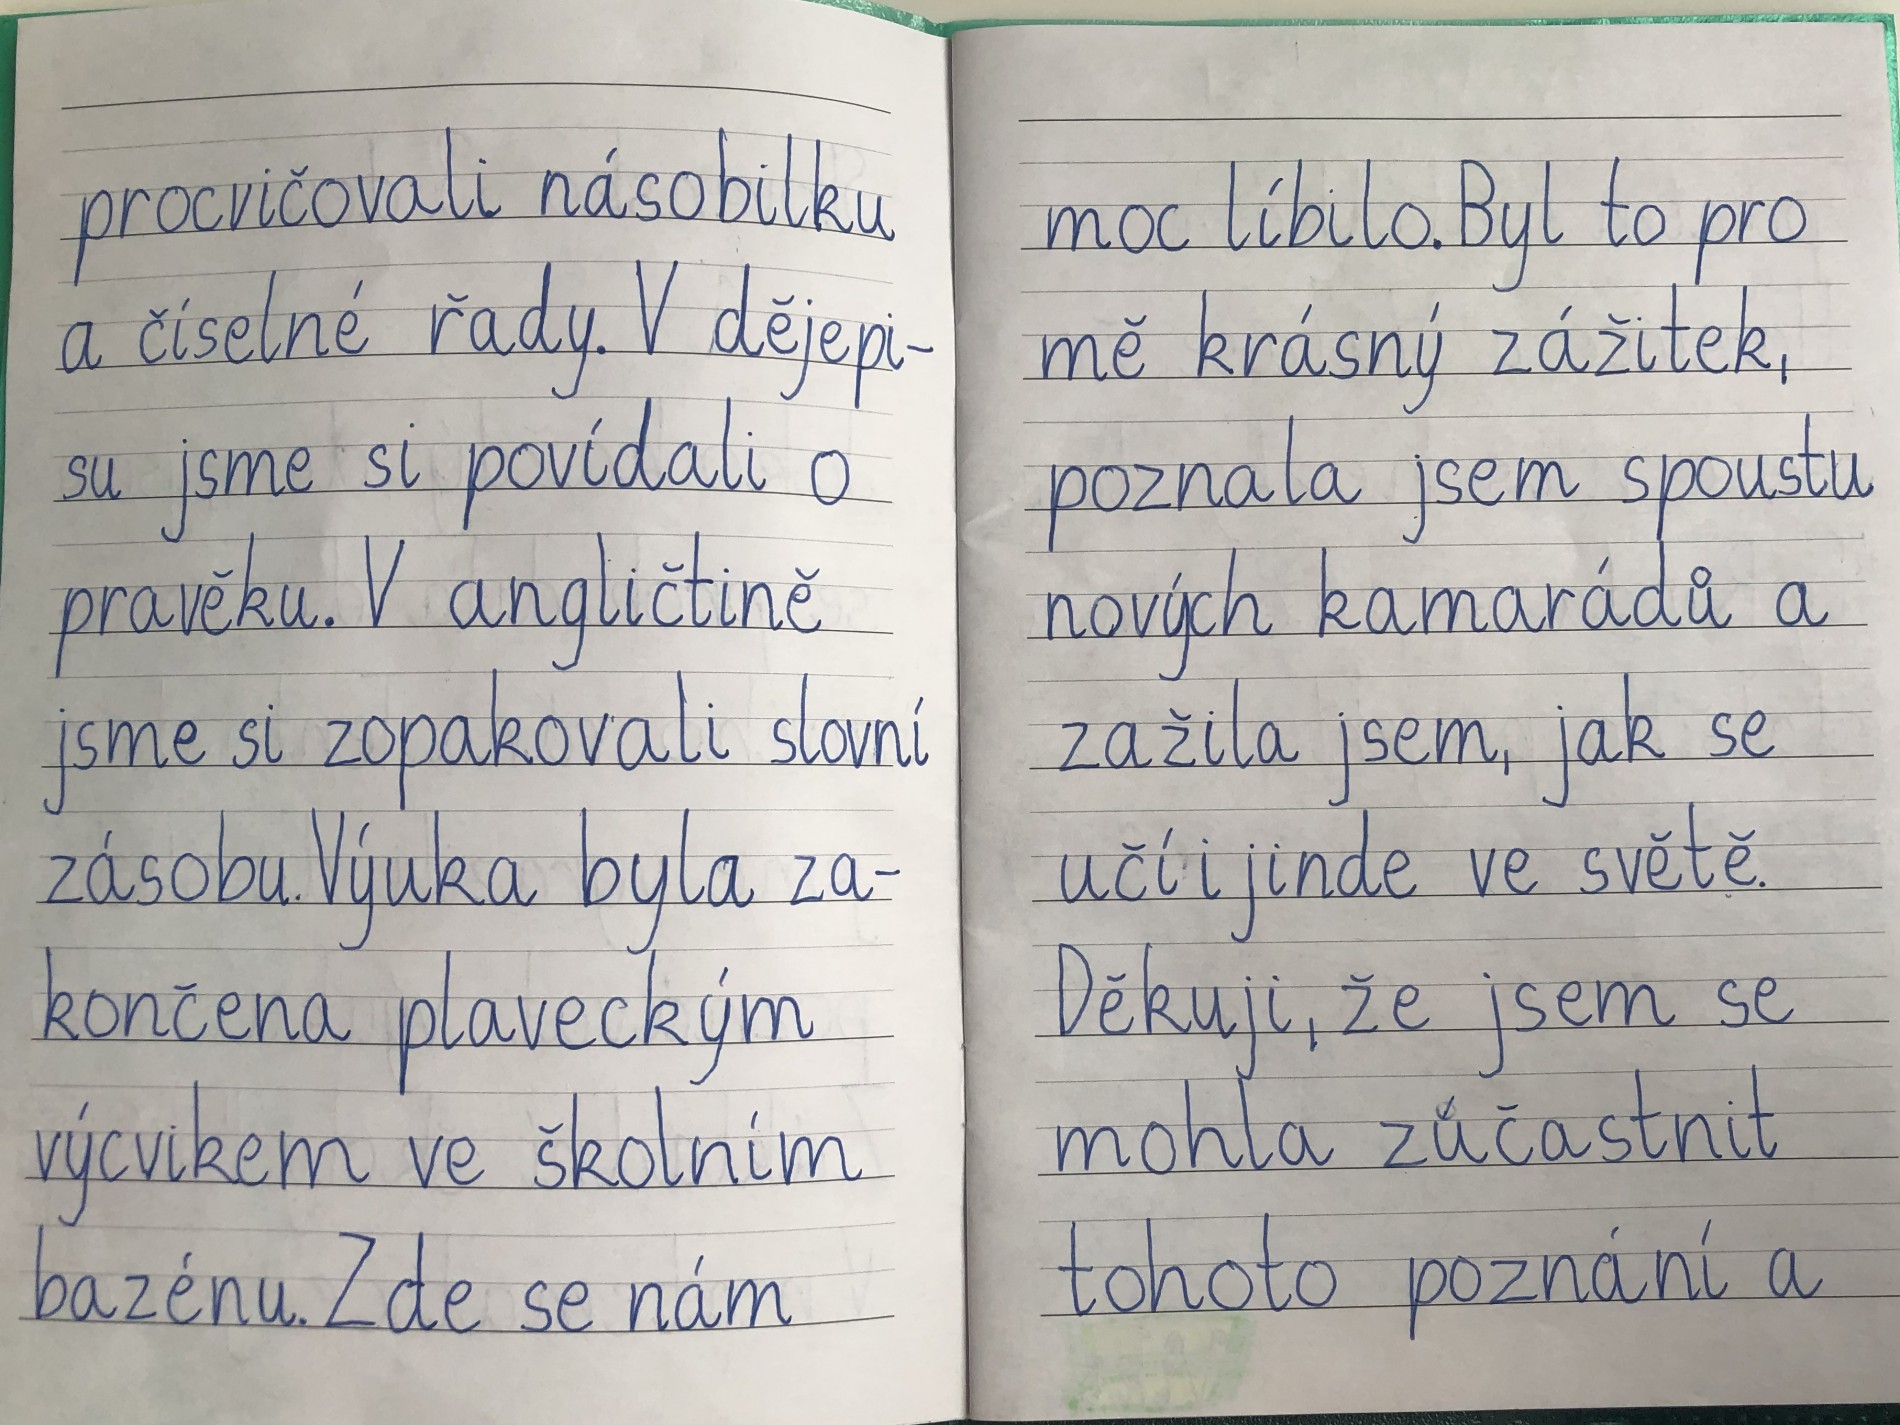 procvičovali násobilku
a číselné řady. V dějepi-
su jsme si povídali o
pravěku. V angličtině
jsme si zopakovali slovní
zásobu. Výuka byla za-
končena plaveckým
výcvikem ve školním
bazénu. Zde se nám
moc líbilo. Byl to pro
mě krásný zážitek,
poznala jsem spoustu
nových kamarádů a
zažila jsem, jak se
učí i jinde ve světě.
Děkuji, že jsem se
mohla zůčastnit
tohoto poznání a